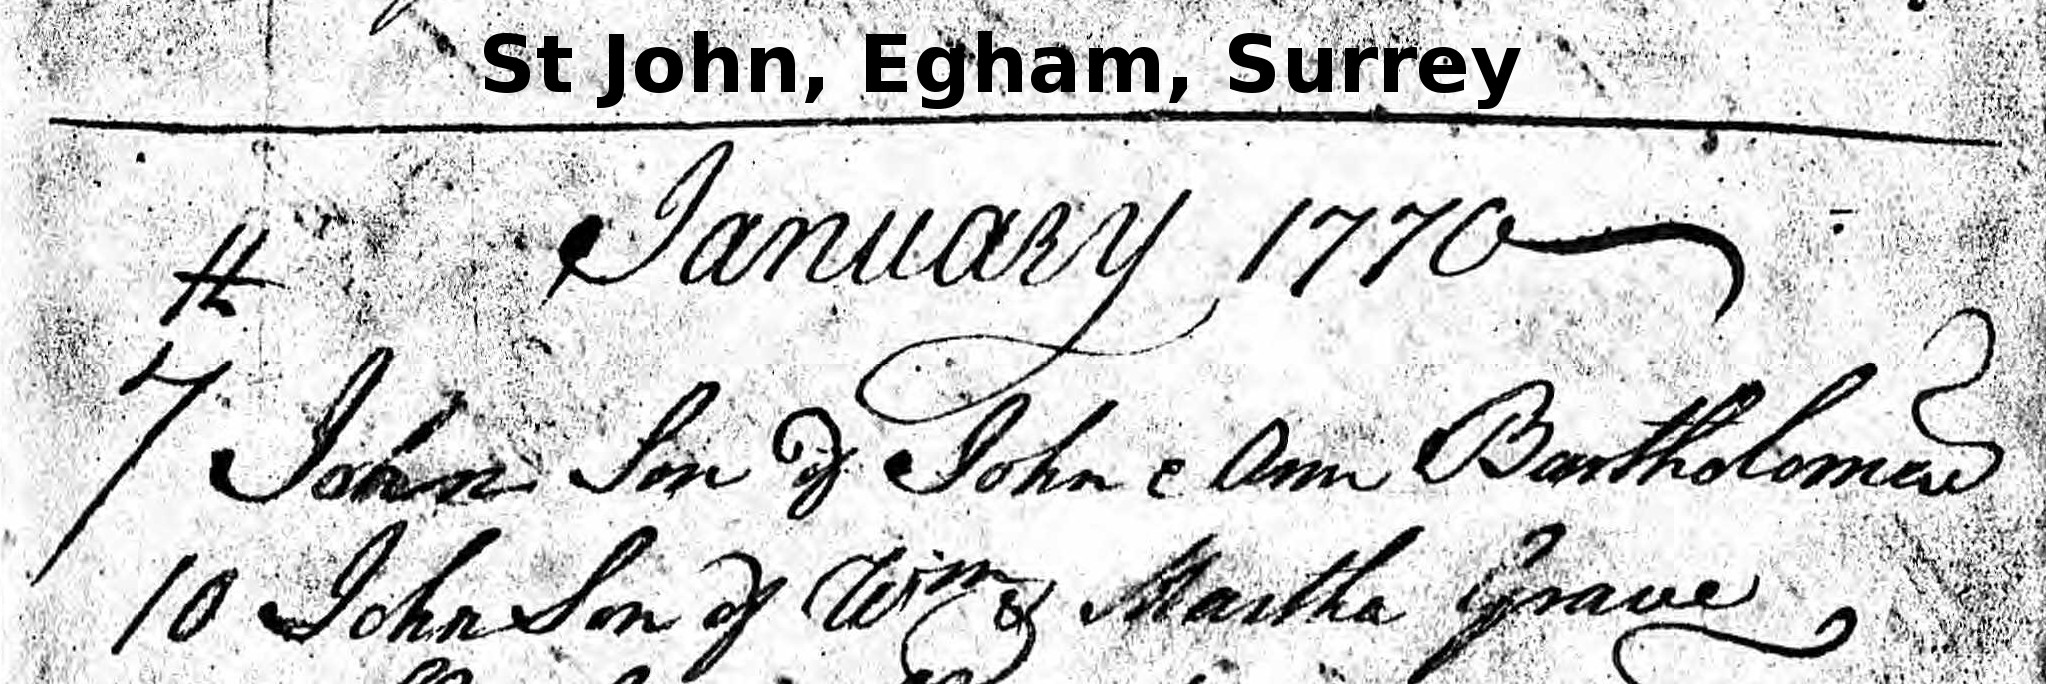 St John, Egham, Surrey
January 1770
7 John Son of John & Ann Bartholomew
10 John Son of Wm & Martha Grave